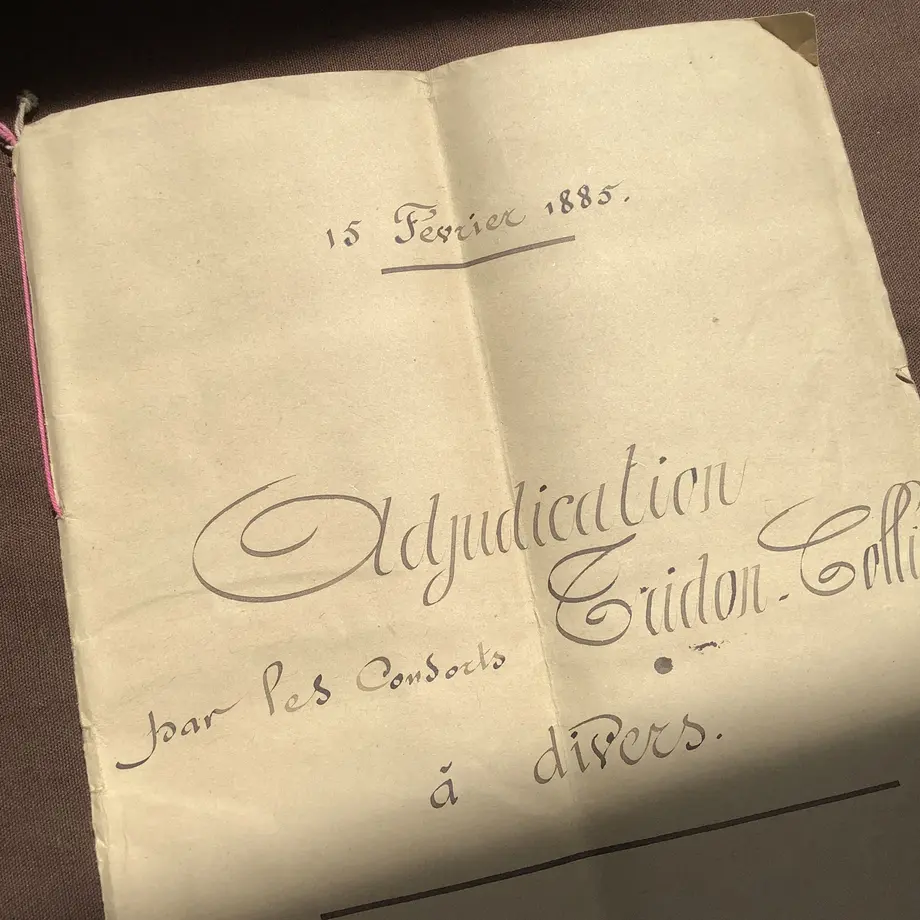 15 Fevrier 1885.
Adjudication
par les Consorts Tridon-Colli
à divers.